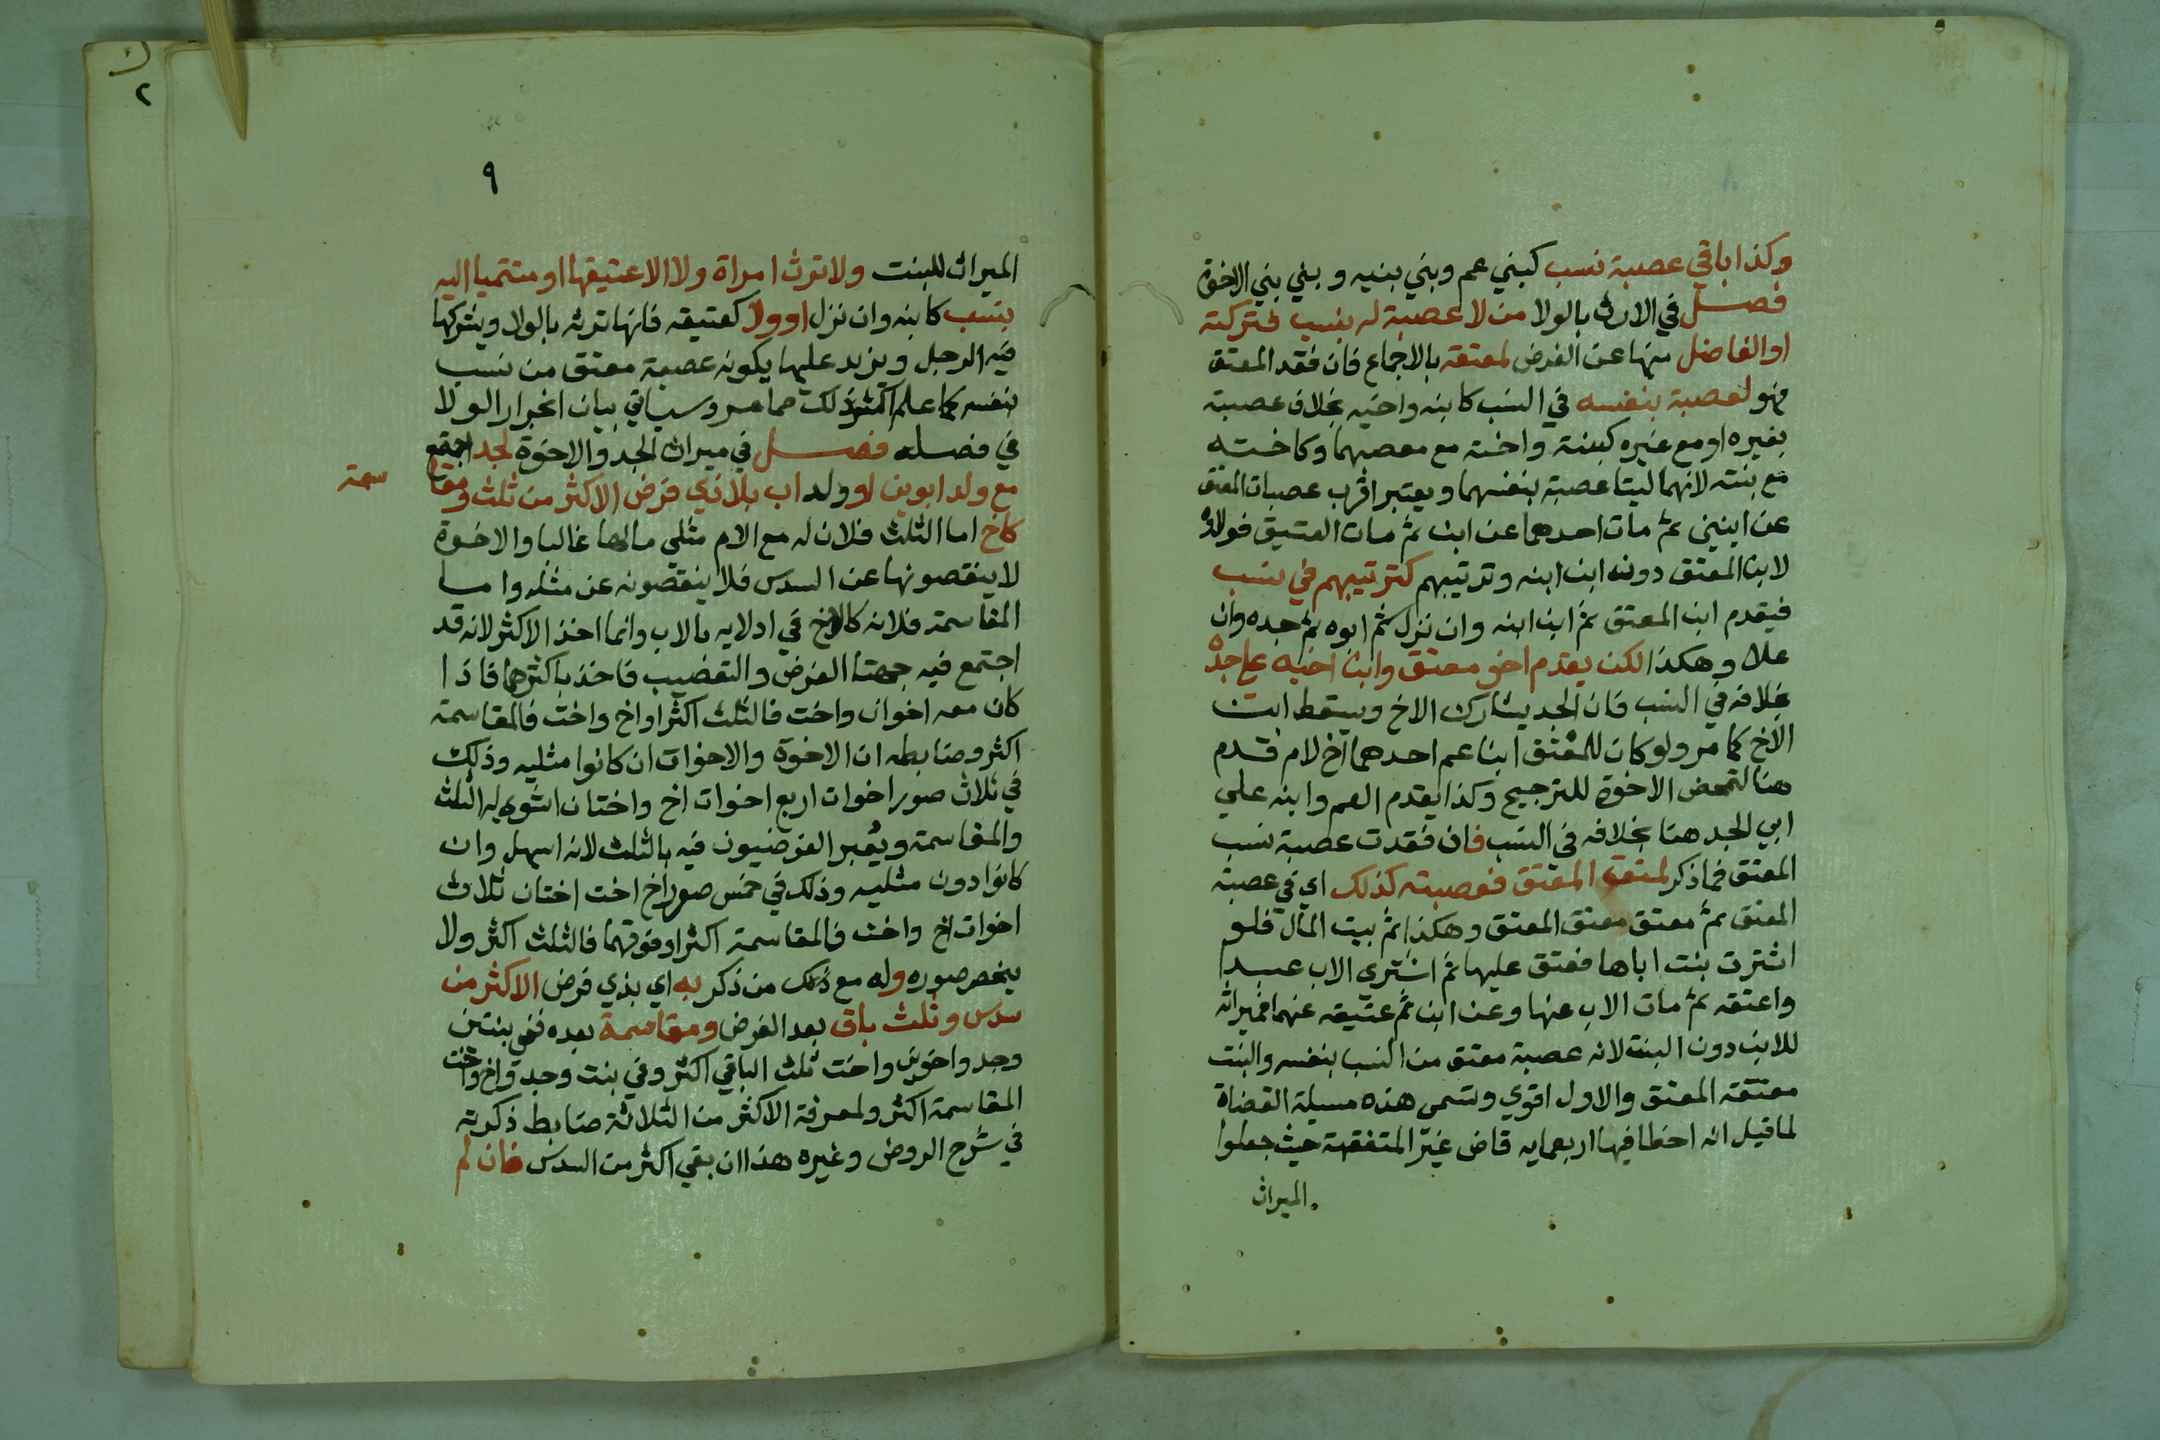 وكذا باقي عصبة نسب كبني عم وبني بنيه وبني بني الاخوة
فصل في الارث بالولا من لا عصبة له بنسب فتركته
او الفاضل منها عن الفرض لمعتقه بالاجماع فان فقد المعتق
فهو لعصبة بنفسه في النسب كابنه واخيه بخلاف عصبة
بغيره او مع غيره كبنته واخته مع معصبهما وكاخته
مع بنته لانهما ليتا عصبة بنفسهما ويعتبر اقرب عصبات المعتق
عن ابنين ثم مات احدهما عن ابن ثم مات العتيق فولاؤه
لابن المعتق دون ابن ابنه وترتيبهم كترتيبهم في نسب
فيقدم ابن المعتق ثم ابن ابنه وان نزل ثم ابوه ثم جده وان
علا وهكذا لكن يقدم اخو معتق وابن اخيه على جده
بخلافه في النسب فان الجد يشارك الاخ ويسقط ابن
الاخ كما مر ولو كان للمعتق ابنا عم احدهما اخ لام قدم
هنا لتمحض الاخوة للترجيح وكذا يقدم العم وابنه علي
ابي الجد هنا بخلافه في النسب فان فقدت عصبة نسب
المعتق فما ذكر لمعتق المعتق فعصبته كذلك اي في عصبة
المعتق ثم معتق معتق المعتق وهكذا ثم بيت المال فلو
اشترت بنت اباها فعتق عليها ثم اشتري الاب عبدا
واعتقه ثم مات الاب عنها وعن ابن ثم عتيقه عنهما فميراثه
للابن دون البنت لانه عصبة معتق من النسب بنفسه والبنت
معتقة المعتق والاول اقوي وتسمى هذه مسيلة القضاة
لما قيل انه اخطا فيها اربعمايه قاض غير المتفقهة حيث جعلوا
الميراث
٢
٩
الميراث للبنت ولا ترث امراة ولا الا عتيقها او منتميا اليه
بنسب كابنه وان نزل او ولا كعتيقه فانها ترثه بالولا ويشركها
فيه الرجل ويزيد عليها بكونه عصبة معتق من نسب
بنفسه كما علم اكثر ذلك مما مر وسياتي بيان انجرار الولا
في فصله فصل في ميراث الجد والاخوة لجد اجتمع
مع ولد ابوين او ولد اب بلا ذي فرض الاكثر من ثلث ومقا
سمة
كاخ اما الثلث فلان له مع الام مثلي مالها غالبا والاخوة
لا ينقصونها عن السدس فلا ينقصونه عن مثله واما
المقاسمة فلانه كالاخ في ادلايه بالاب وانما اخذ الاكثر لانه قد
اجتمع فيه جهتا الفرض والتعصيب فاخذ باكثرهما فاذا
كان معه اخوان واخت فالثلث اكثر او اخ واخت فالمقاسمة
اكثر وضابطه ان الاخوة والاخوات ان كانوا مثليه وذلك
في ثلاث صور اخوات اربع اخوات اخ واختان استوي له الثلث
والمقاسمة ويعبر الفرضيون فيه بالثلث لانه اسهل وان
كانوا دون مثليه وذلك في خمس صور اخ اخت اختان ثلاث
اخوات اخ واخت فالمقاسمة اكثر او فوقهما فالثلث اكثر ولا
ينحصر صوره وله مع ذلك من ذكر به اي بذي فرض الاكثر من
سدس وثلث باق بعد الفرض ومقاسمة بعده ففي بنتين
وجد واخوين واخت ثلث الباقي اكثر وفي بنت وجد واخ واخت
المقاسمة اكثر ولمعرفة الاكثر من الثلاثة ضابط ذكرته
في شرح الروض وغيره هذا ان بقي اكثر من السدس فان لم